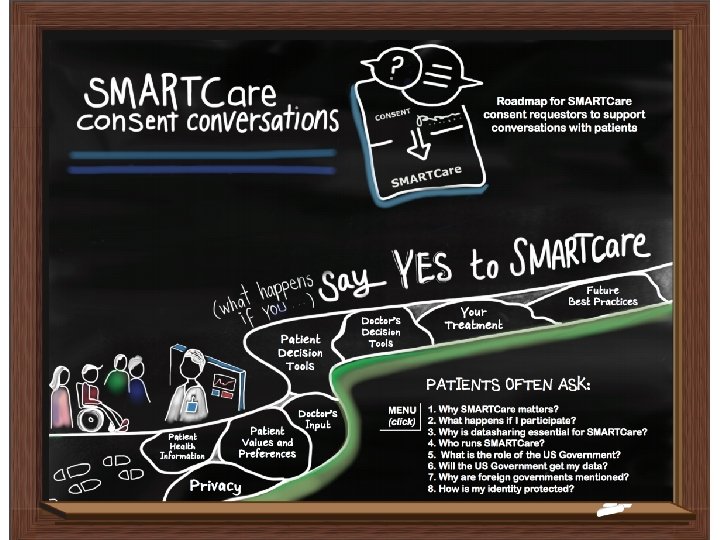 SMARTCare
consent conversations
?
CONSENT
SMARTCare
Roadmap for SMARTCare
consent requestors to support
conversations with patients
(what happens
if you ...)
Say YES to SMARTCare
Patient
Decision
Tools
Doctor's
Decision
Tools
Your
Treatment
Future
Best Practices
Patient
Health
Information
Patient
Values and
Preferences
Doctor's
Input
Privacy
PATIENTS OFTEN ASK:
MENU
(click)
1. Why SMARTCare matters?
2. What happens if I participate?
3. Why is datasharing essential for SMARTCare?
4. Who runs SMARTCare?
5. What is the role of the US Government?
6. Will the US Government get my data?
7. Why are foreign governments mentioned?
8. How is my identity protected?